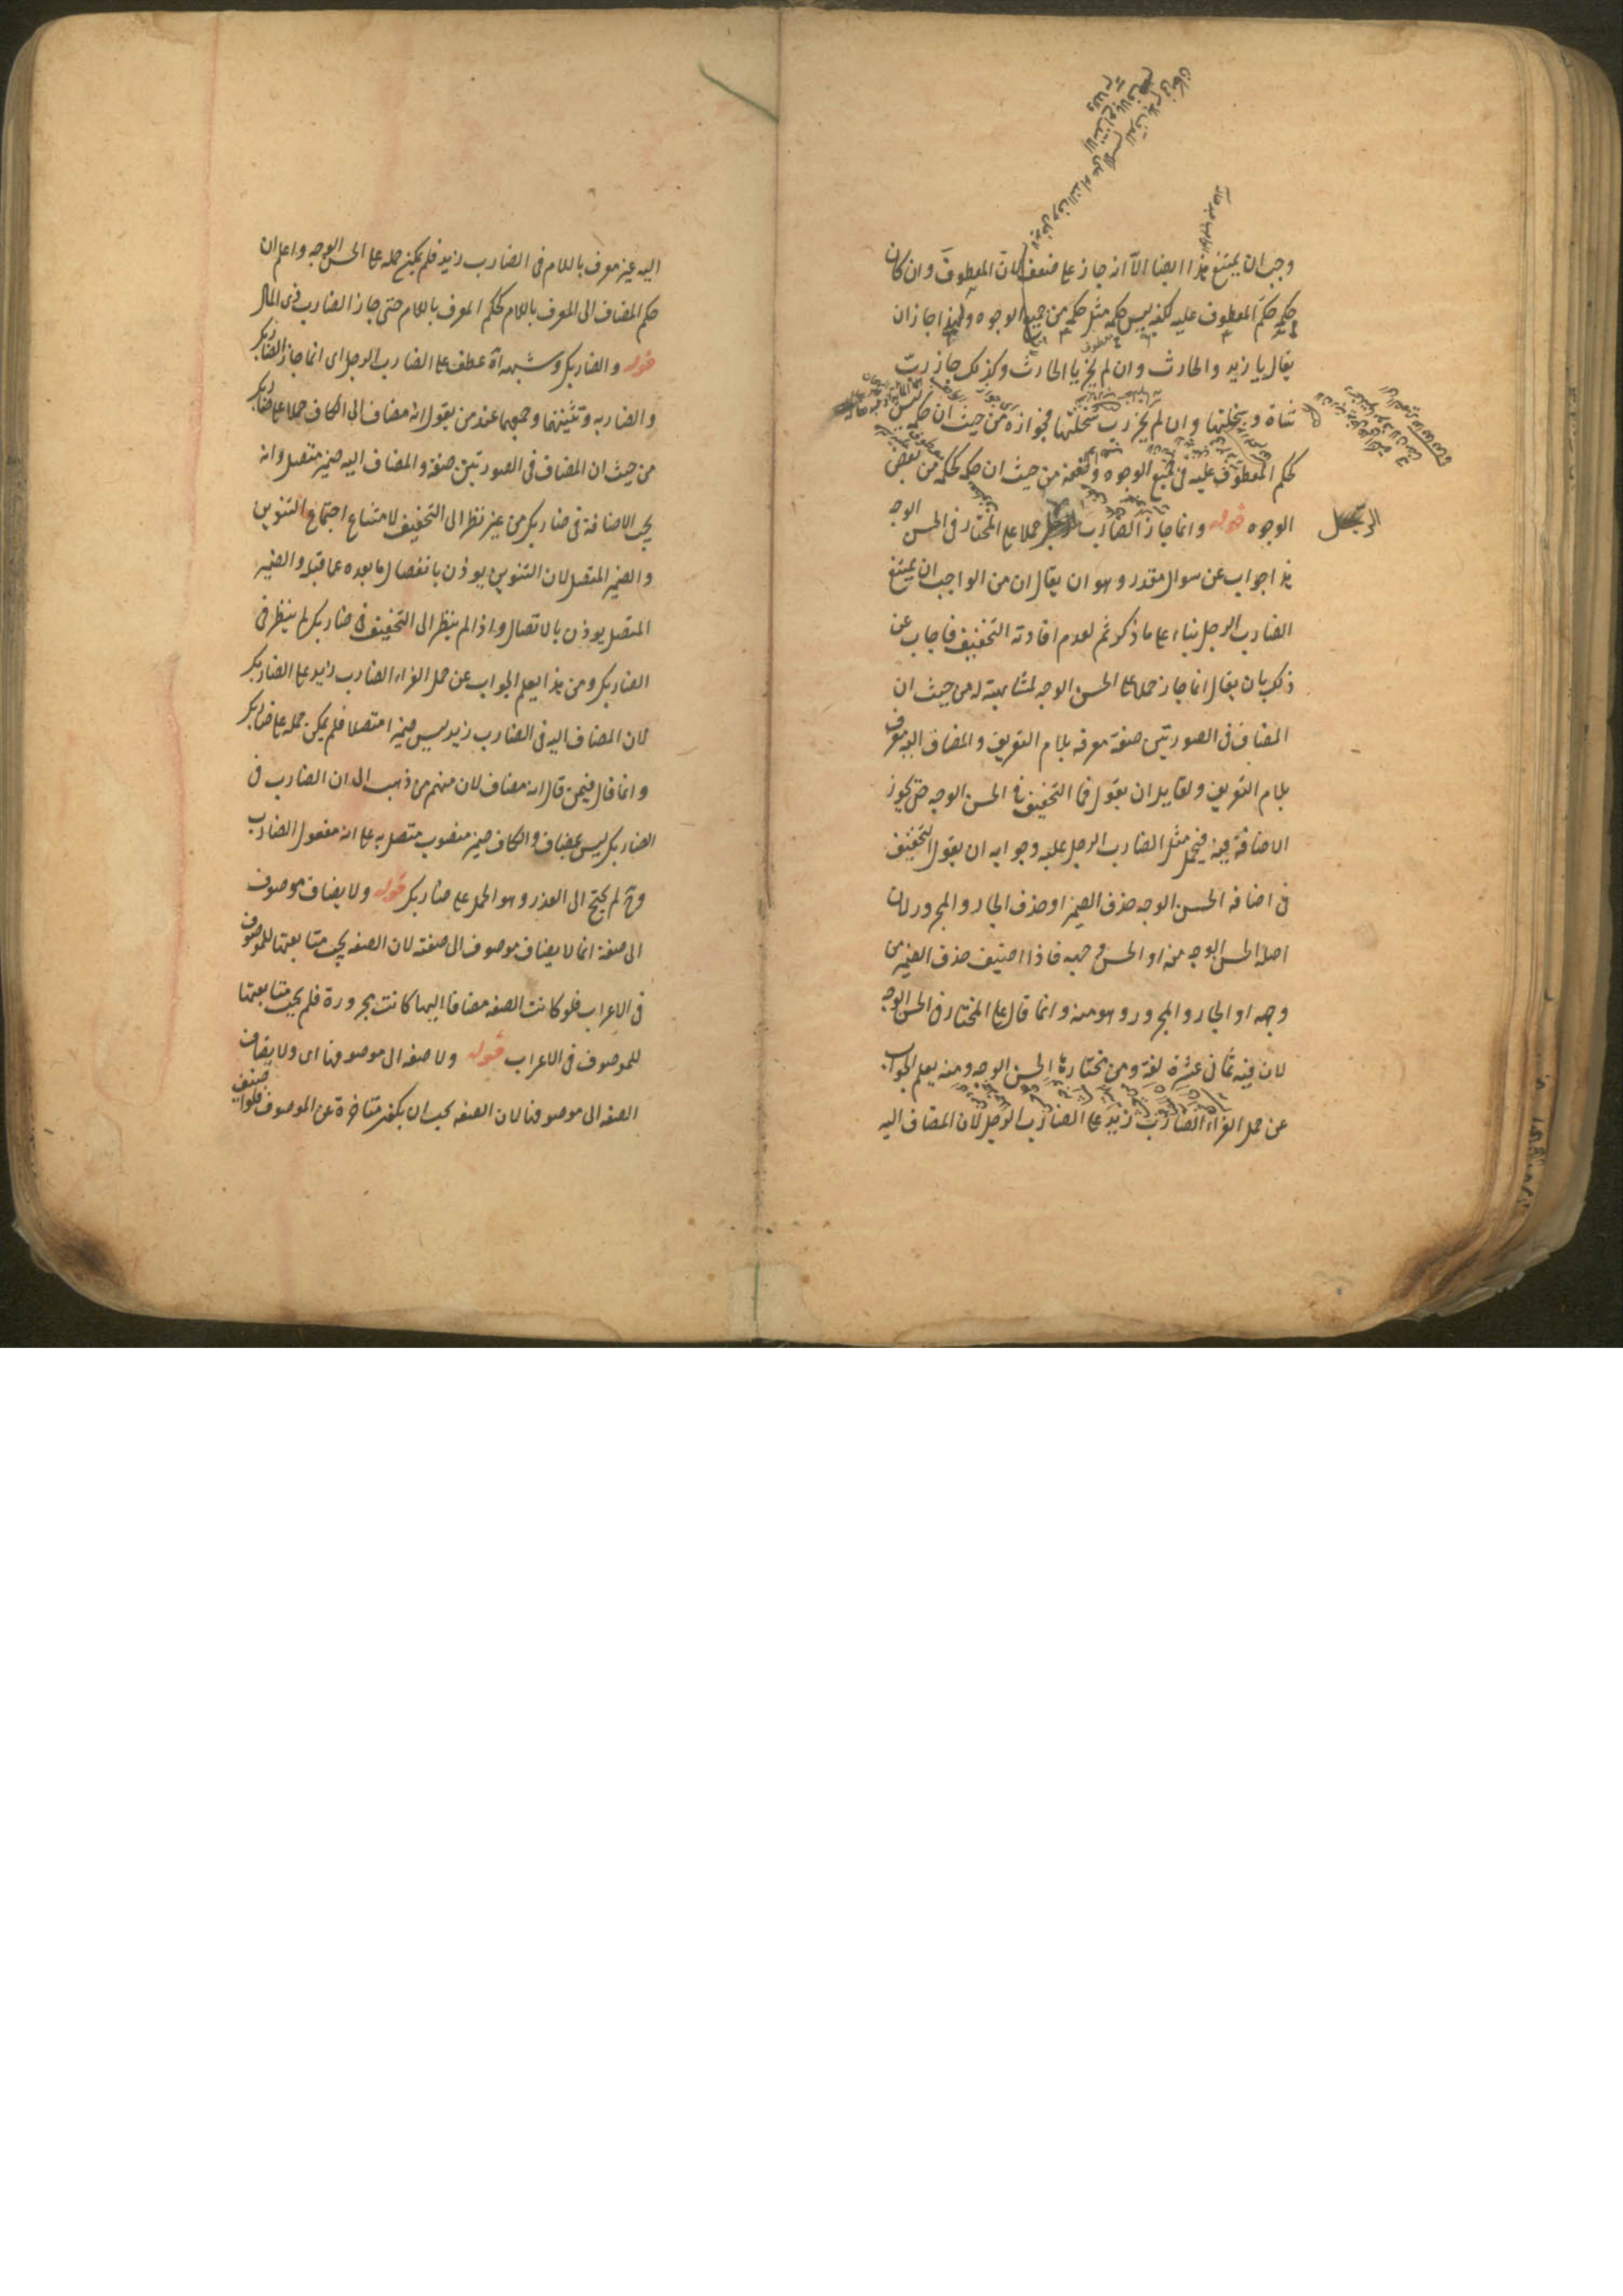 وجب ان يمتنع هذا ايضا الا انه جاز على ضعف لان المعطوف وان كان
حكمه حكم المعطوف عليه لكنه ليس حكمه مثل حكمه من جميع الوجوه ولهذا جاز ان
يقال يا زيد والحارث وان لم يجز يا الحارث وكذلك جاز ربّ
شاة وسخلتها وان لم يجز رب سخلتها فجوازه من حيث ان حكمه ليس
كحكم المعطوف عليه في جميع الوجوه وضعفه من حيث ان حكمه كحكمه من بعض
الوجوه قوله وانما جاز الضارب الرجل حملا على المختار في الحسن الوجه
هذا جواب عن سوال مقدر وهو ان يقال ان من الواجب ان يمتنع
الضارب الرجل بناء على ما ذكرتم لعدم افادته التخفيف فاجاب عن
ذلك بان يقال انما جاز حملا على الحسن الوجه لمشابهته له من حيث ان
المضاف في الصورتين صفة معرفه بلام التعريف والمضاف اليه معرف
بلام التعريف ولقايل ان يقول فما التخفيف في الحسن الوجه حتى يجوز
الاضافة فيه فيحمل مثل الضارب الرجل عليه وجوابه ان يقول التخفيف
في اضافه الحسن الوجه حذف الضمير او حذف الجار والمجرور لان
اصله الحسن الوجه منه او الحسن وجهه فاذا اضيف حذف الضمير من
وجهه او الجار والمجرور وهو منه وانما قال على المختار في الحسن الوجه
لان فيه ثماني عشرة لغة ومن مختارها الحسن الوجه ومنه يعلم الجواب
عن حمل الفراء الضارب زيد على الضارب الرجل لان المضاف اليه
الرجل
اليه غير معرف باللام في الضارب زيد فلم يمكن حمله على الحسن الوجه واعلم ان
حكم المضاف الى المعرف باللام كحكم المعرف باللام حتى جاز الضارب ذى المال
قوله والضاربك وشبهه آه عطف على الضارب الرجل اى انما جاز الضاربك
والضاربه وتثنيتهما وجمعهما عند من يقول انه مضاف الى الكاف حملا على ضاربك
من حيث ان المضاف في الصورتين صفة والمضاف اليه ضمير متصل وانه
يجب الاضافة في ضاربك من غير نظر الى التخفيف لامتناع اجتماع التنوين
والضمير المتصل لان التنوين يوذن بانفصال ما بعده عما قبله والضمير
المتصل يوذن بالاتصال واذا لم ينظر الى التخفيف في ضاربك لم ينظر في
الضاربك ومن هذا يعلم الجواب عن حمل الفراء الضارب زيد على الضاربك
لان المضاف اليه في الضارب زيد ليس ضميرا متصلا فلم يمكن حمله على ضاربك
وانما قال فيمن قال انه مضاف لان منهم من ذهب الى ان الضارب في
الضاربك ليس بمضاف والكاف ضمير منصوب متصل به على انه مفعول الضارب
وح لم يحتج الى العذر وهو الحمل على ضاربك قوله ولا يضاف موصوف
الى صفة انما لا يضاف موصوف الى صفته لان الصفه يجب متابعتها للموصوف
في الاعراب فلو كانت الصفه مضافا اليها كانت مجرورة فلم يجب متابعتها
للموصوف في الاعراب قوله ولا صفه الى موصوفها اى ولا يضاف
الصفه الى موصوفها لان الصفه يجب ان يكون متاخرة عن الموصوف فلو اضيف